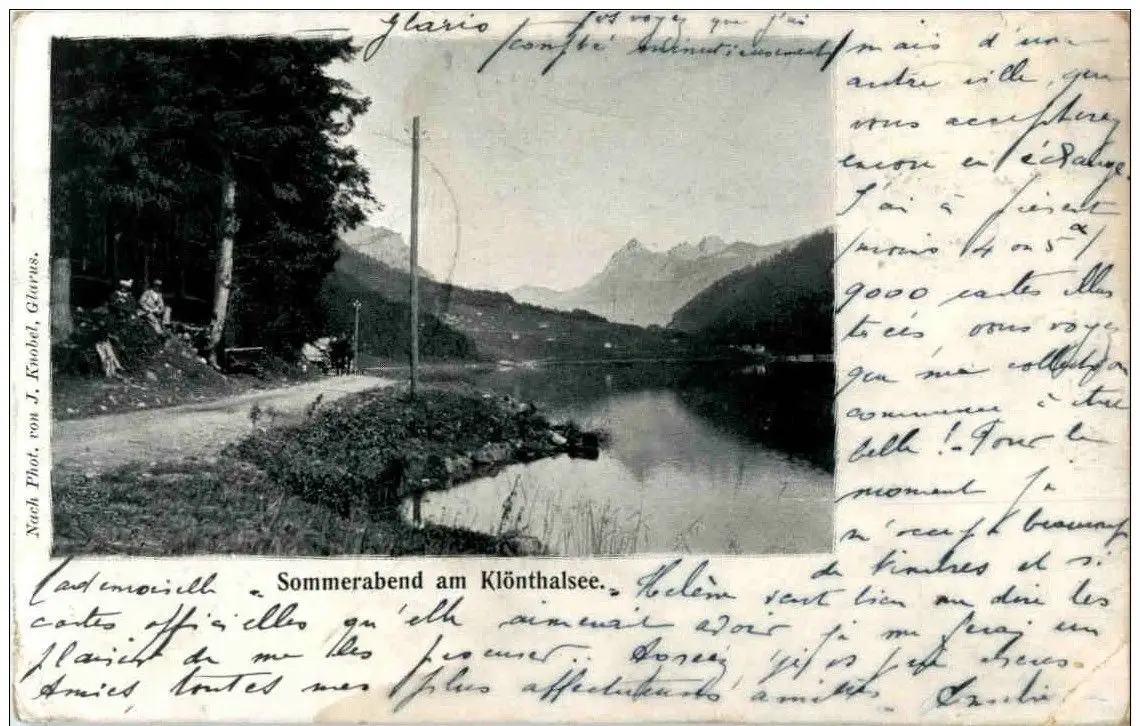 Glaris
Vos voyez que j'ai
compté minutieusement
mais d'une
autre ville, que
vous accepterez
encore en échange.
J'ai à présent
moins 4 ou 5
9000 cartes elles
vous voyez
que ma collection
commence à être
belle! Pour le
moment je
m'occupe beaucoup
de timbres et si
Nach Phot. von J. Knobel, Glarus.
Sommerabend am Klönthalsee.
Mademoiselle Hélène veut bien me dire les
cartes officielles qu'elle aimerait avoir je me ferai un
plaisir de me les procurer. chères
Amies, toutes mes plus affectueuses amitiés.